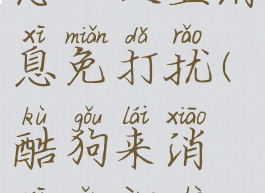 xī miǎn dǎ rǎo
息免打扰(
kù gǒu lái xiāo
酷狗来消